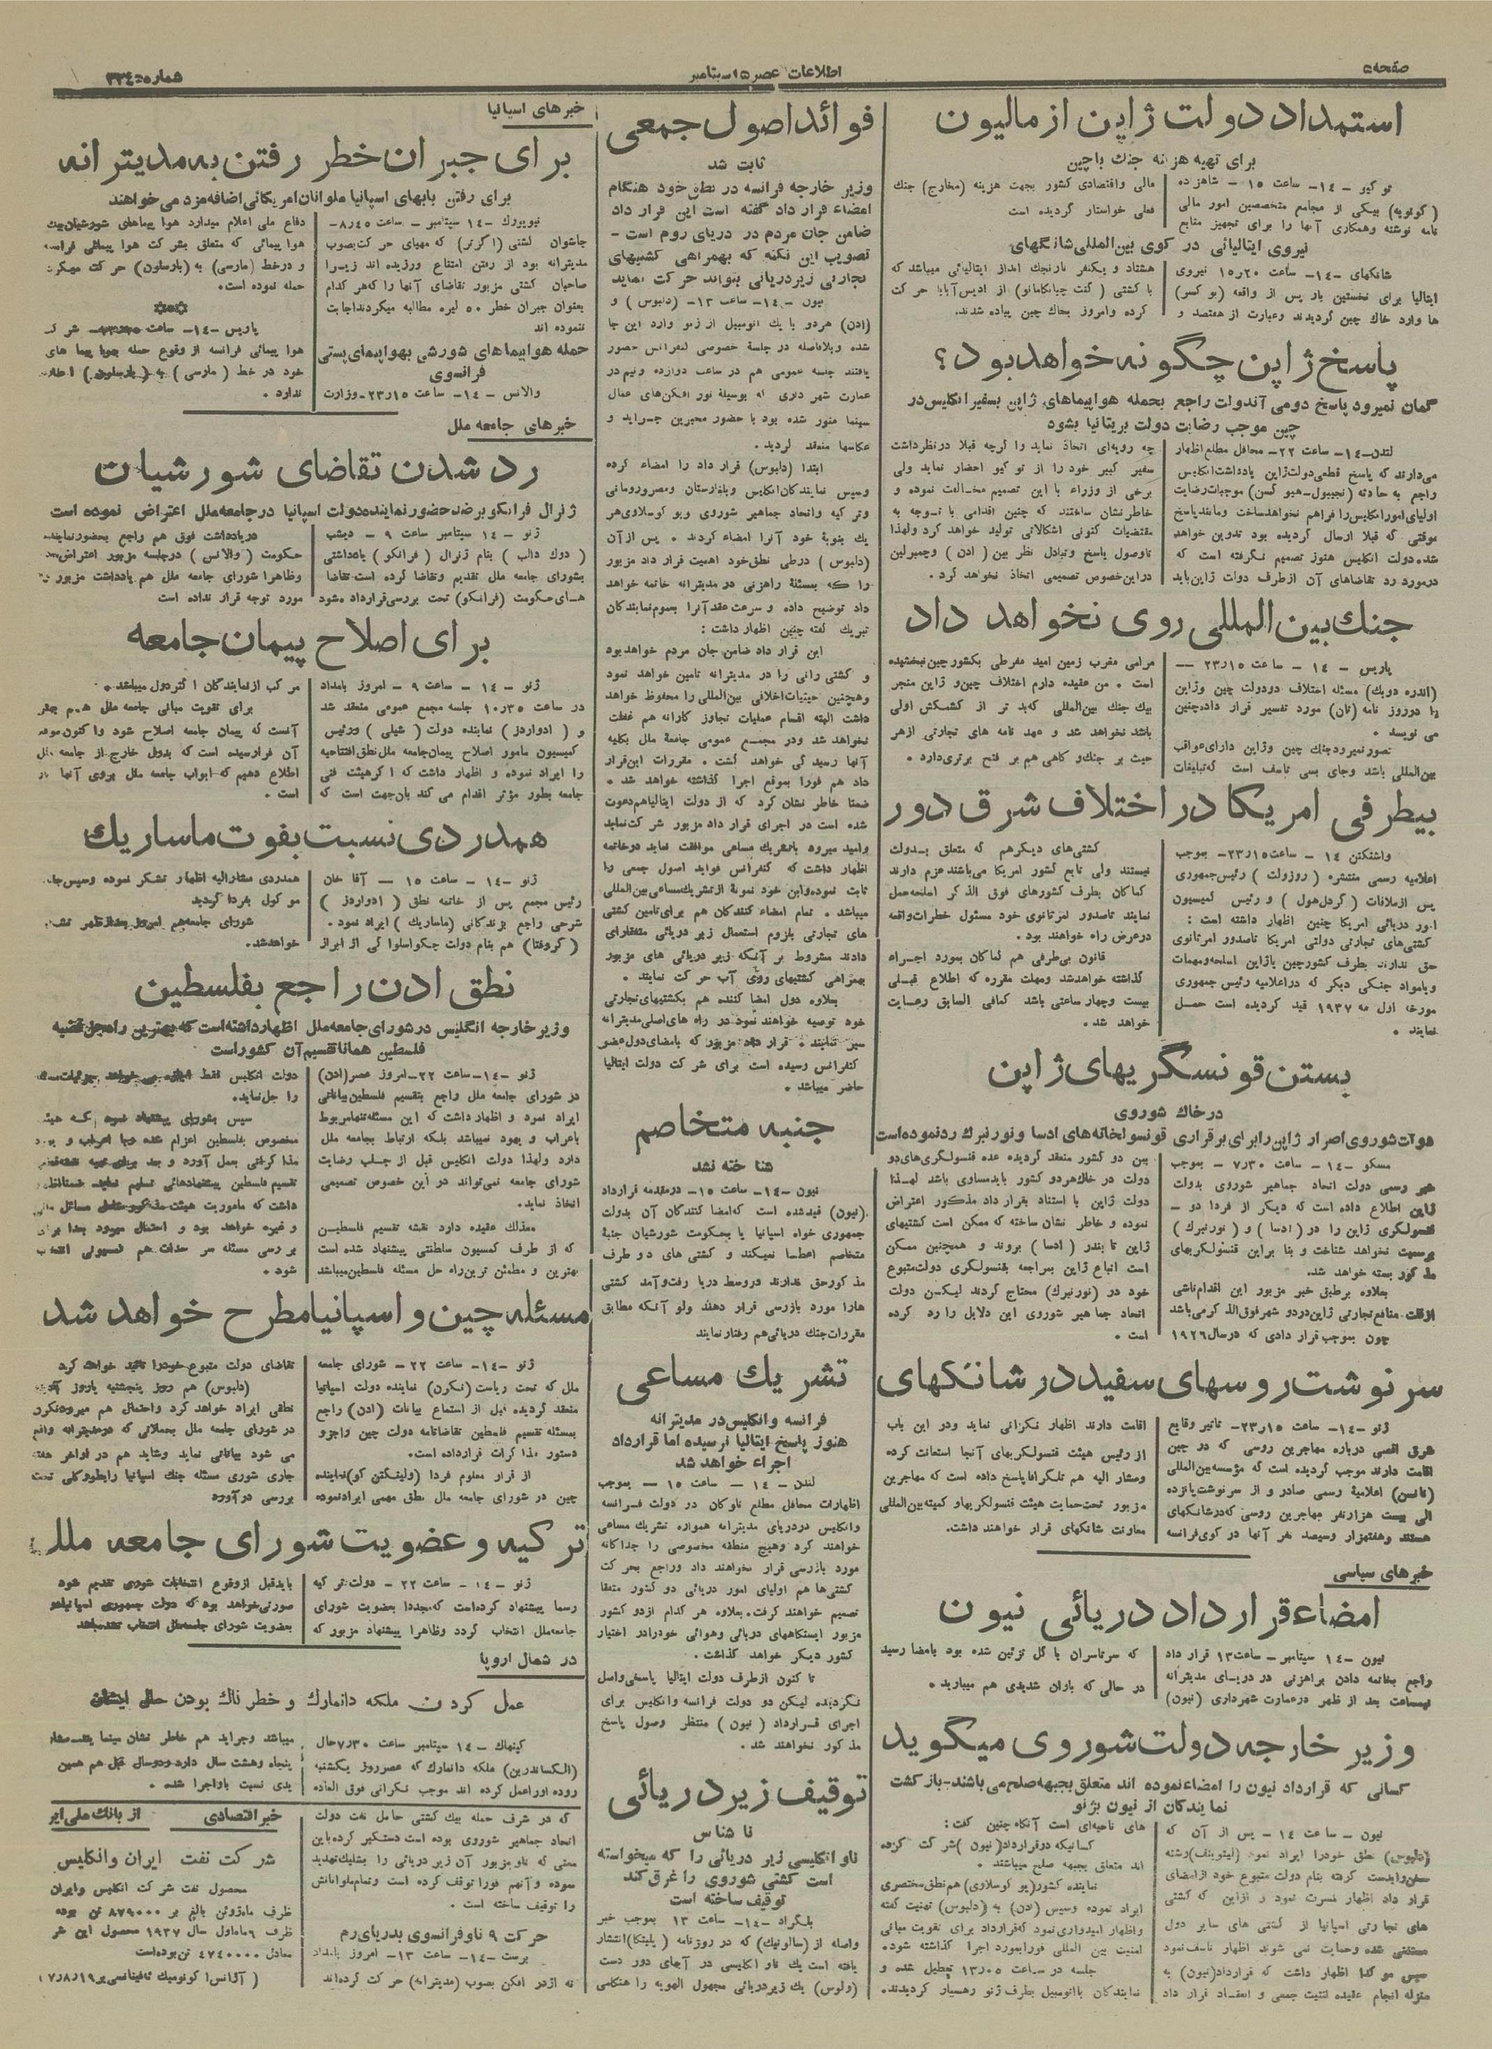 صفحه ۵
اطلاعات عصر ۱۵ سپتامبر
استمداد دولت ژاپن از مالیون
برای تهیه هزینه جنك با چین
توکیو - ۱۴- ساعت ۱۵ - شاهزده
(کونویه) بیکی از مجامع متخصصین امور مالی
نامه نوشته و همکاری آنها را برای تجهیز منابع
مالی و اقتصادی کشور بجهت هزینه (مخارج) جنك
فعلی خواستار گردیده است
نیروی ایتالیائی در کوی بین‌المللی شانگهای
شانگهای -۱۴- ساعت ۱۵ر۲۰ نیروی
ایتالیا برای نخستین بار پس از واقعه (بوکسر)
ها وارد خاك چین گردیدند و عبارت از هفتصد و
هشتاد و یکنفر نارنجك انداز ایتالیائی میباشد که
با کشتی از ادیس‌آبابا حرکت
کرده و امروز بخاك چین پیاده شدند.
پاسخ ژاپن چگونه خواهد بود؟
گمان نمیرود پاسخ دومی آندولت راجع بحمله هواپیماهای ژاپن بسفیر انگلیس در
چین موجب رضایت دولت بریتانیا بشود
لندن-۱۴- ساعت ۲۲- محافل مطلع اظهار
می‌دارند که پاسخ قطعی دولت ژاپن بیادداشت انگلیس
راجع به حادثه (نچیبول-هیو کسن) موجبات رضایت
اولیای امور انگلیس را فراهم نخواهد ساخت و مانند پاسخ
موقتی که قبلا ارسال گردیده بود تدوین خواهد
شد. دولت انگلیس هنوز تصمیم نگرفته است که
در مورد رد تقاضاهای آن از طرف دولت ژاپن باید
چه رویه‌ای اتخاذ نماید و اگرچه قبلا در نظر داشت
سفیر کبیر خود را از توکیو احضار نماید ولی
برخی از وزراء با این تصمیم مخالفت نموده و
خاطرنشان ساختند که چنین اقدامی با توجه به
مقتضیات کنونی اشکالاتی تولید خواهد کرد ولهذا
تا وصول پاسخ و تبادل نظر بین (ادن) و چمبرلین
در این خصوص تصمیمی اتخاذ نخواهد کرد .
جنك بین‌المللی روی نخواهد داد
پاریس - ۱۴ - ساعت ۱۵ر۲۳ --
(اندره دوبك) مسئله اختلاف دو دولت چین و ژاپن
را در روزنامه (تان) مورد تفسیر قرار داده چنین
می نویسد .
تصور نمیرود جنك چین و ژاپن دارای عواقب
بین‌المللی باشد و جای بسی تاسف است که تبلیغات
مرامی مغرب زمین امید مفرطی بکشور چین بخشیده
است . من عقیده دارم اختلاف چین و ژاپن منجر
بیك جنك بین‌المللی که بدتر از کشمکش اولی
باشد نخواهد شد و عهد نامه های تجارتی از هر
حیث بر جنك و گاهی هم بر فتح برتری دارد .
بیطرفی امریکا در اختلاف شرق دور
واشنگتن ۱۴ - ساعت ۱۵ر۲۳- بموجب
اعلامیه رسمی منتشره (روزولت) رئیس جمهوری
پس از ملاقات (کردل هول) و رئیس کمیسیون
امور دریائی امریکا چنین اظهار داشته است :
کشتی‌های تجارتی دولتی امریکا تا صدور امر ثانوی
حق ندارند بطرف کشور چین یا ژاپن اسلحه و مهمات
و یا مواد جنگی دیگر که در اعلامیه رئیس جمهوری
مورخه اول مه ۱۹۳۷ قید گردیده است حمل
نمایند .
کشتی‌های دیگر هم که متعلق بدولت
نیستند ولی تابع کشور امریکا می‌باشند عزم دارند
کماکان بطرف کشورهای فوق الذکر اسلحه حمل
نمایند تا صدور امر ثانوی خود مسئول خطرات واقعه
در عرض راه خواهند بود .
قانون بی‌طرفی هم کماکان بمورد اجراء
گذاشته خواهد شد و مهلت مقرره که اطلاع قبلی
بیست و چهار ساعتی باشد کمافی السابق رعایت
خواهد شد .
بستن قونسگریهای ژاپن
در خاك شوروی
دولت شوروی اصرار ژاپن را برای برقراری قونسولخانه‌های ادسا و نورنبرك رد نموده است
مسکو -۱۴- ساعت ۳۰ر۷ - بموجب
خبر رسمی دولت اتحاد جماهیر شوروی بدولت
ژاپن اطلاع داده است که دیگر از فردا دو
قنسولگری ژاپن را در (ادسا) و (نورنبرك)
برسمیت نخواهد شناخت و بنا بر این قنسولگریهای
مذکور بسته خواهد شد.
بعلاوه بر طبق خبر مزبور این اقدام ناشی
از قلت منافع تجارتی ژاپن در دو شهر فوق الذکر می‌باشد
چون بموجب قرار دادی که در سال ۱۹۲۶
بین دو کشور منعقد گردیده عده قنسولگری‌های دو
دولت در خاك هر دو کشور باید مساوی باشد لهذا
دولت ژاپن با استناد بقرار داد مذکور اعتراض
نموده و خاطر نشان ساخته که ممکن است کشتیهای
ژاپن تا بندر (ادسا) بروند و همچنین ممکن
است اتباع ژاپن بمراجعه بقنسولگری دولت متبوع
خود در (نورنبرك) محتاج گردند لیکن دولت
اتحاد جماهیر شوروی این دلایل را رد کرده
است .
سرنوشت روسهای سفید در شانگهای
ژنو -۱۴- ساعت ۱۵ر۲۳- تاثیر وقایع
شرق اقصی درباره مهاجرین روسی که در چین
اقامت دارند موجب گردیده است که مؤسسه بین‌المللی
(نانسن) اعلامیهٔ رسمی صادر و از سرنوشت پانزده
الی بیست هزار نفر مهاجرین روسی که در شانگهای
هستند و هفتهزار و سیصد نفر آنها در کوی فرانسه
اقامت دارند اظهار نگرانی نماید و در این باب
از رئیس هیئت قنسولگریهای آنجا استعانت کرده
و مشار الیه هم تلگرافا پاسخ داده است که مهاجرین
مزبور تحت حمایت هیئت قنسولگریها و کمیته بین‌المللی
معاونت شانگهای قرار خواهند داشت.
خبرهای سیاسی
امضاء قرارداد دریائی نیون
نیون - ۱۴ سپتامبر - ساعت ۱۳ قرار داد
راجع بخاتمه دادن براهزنی در دریای مدیترانه
نیمساعت بعد از ظهر در عمارت شهرداری (نیون)
که سرتاسران با گل تزئین شده بود بامضا رسید
در حالی که باران شدیدی هم میبارید .
وزیر خارجه دولت شوروی میگوید
کسانی که قرارداد نیون را امضاء نموده اند متعلق بجبهه صلح می‌باشند-بازگشت
نمایندگان از نیون بژنو
نیون - ساعت ۱۴ - پس از آن که
(دلبوس) نطق خود را ایراد نمود (لیتوینف) رشته
سخن را بدست گرفته بنام دولت متبوع خود از امضای
قرار داد اظهار مسرت نمود و از این که کشتی
های تجارتی اسپانیا از کشتی های سایر دول
مستثنی شده و حمایت نمی شوند اظهار تاسف نمود
سپس موکدا اظهار داشت که قرارداد (نیون) به
منزله انجام عقیده امنیت جمعی و انعقاد قرار داد
های ناحیه‌ای است آنگاه چنین گفت :
کسانیکه در قرارداد (نیون) شرکت کرده
اند متعلق بجبهه صلح میباشند .
نماینده کشور (یوگوسلاوی) هم نطق مختصری
ایراد نموده و سپس (ادن) به (دلبوس) تهنیت گفته
و اظهار امیدواری نمود که قرارداد برای تقویت مبانی
امنیت بین المللی فورا بمورد اجرا گذاشته شود.
جلسه در ساعت ۰۵ر۱۳ تعطیل شده و
نمایندگان با اتومبیل بطرف ژنو رهسپار گردیدند.
فوائد اصول جمعی
ثابت شد
وزیر خارجه فرانسه در نطق خود هنگام
امضاء قرار داد گفته است این قرار داد
ضامن جان مردم در دریای روم است -
تصویب این نکته که بهمراهی کشتیهای
تجارتی زیردریائی بتواند حرکت نماید
نیون - ۱۴- ساعت ۱۳- (دلبوس) و
(ادن) هر دو با یك اتومبیل از ژنو وارد این جا
شده و بلافاصله در جلسه خصوصی کنفرانس حضور
یافتند جلسه عمومی هم در ساعت دوازده و نیم در
عمارت شهر داری که بوسیله نور افکن‌های عمال
سینما منور شده بود با حضور مخبرین جراید و
عکاسها منعقد گردید .
ابتدا (دلبوس) قرار داد را امضاء کرده
و سپس نمایندگان انگلیس و بلغارستان و مصر و رومانی
و ترکیه و اتحاد جماهیر شوروی و یوگوسلاوی هر
یك بنوبهٔ خود آنرا امضاء کردند . پس از آن
(دلبوس) در طی نطق خود اهمیت قرار داد مزبور
را که بمسئلهٔ راهزنی در مدیترانه خاتمه خواهد
داد توضیح داده و سرعت عقد آنرا بعموم نمایندگان
تبریك گفته چنین اظهار داشت :
این قرار داد ضامن جان مردم خواهد بود
و کشتی رانی را در مدیترانه تامین خواهد نمود
و همچنین حیثیات اخلاقی بین‌المللی را محفوظ خواهد
داشت البته اقسام عملیات تجاوز کارانه هم غفلت
نخواهد شد و در مجمع عمومی جامعهٔ ملل بکلیه
آنها رسیدگی خواهد گشت . مقررات این قرار
داد هم فورا بموقع اجرا گذاشته خواهد شد .
ضمنا خاطر نشان کرد که از دولت ایتالیا هم دعوت
شده است در اجرای قرار داد مزبور شرکت نماید
و امید میرود باتشریك مساعی موافقت نماید در خاتمه
اظهار داشت که کنفرانس فواید اصول جمعی را
ثابت نموده و این خود نمونهٔ از تشریك مساعی بین‌المللی
میباشد . تمام امضاء کنندگان هم برای تامین کشتی
های تجارتی بلزوم استعمال زیر دریائی متقارای
دادند مشروط بر آنکه زیر دریائی های مزبور
بهمراهی کشتیهای روی آب حرکت نمایند .
بعلاوه دول امضا کننده هم بکشتیهای تجارتی
خود توصیه خواهند نمود در راه های اصلی مدیترانه
سیر نمایند . قرار داد مزبور که بامضای دول عضو
کنفرانس رسیده است برای شرکت دولت ایتالیا
حاضر میباشد .
جنبه متخاصم
شناخته نشد
نیون -۱۴- ساعت ۱۵- در مقدمه قرارداد
(نیون) قید شده است که امضا کنندگان آن بدولت
جمهوری خواه اسپانیا یا بحکومت شورشیان جنبهٔ
متخاصم اعطا نمیکند و کشتی های دو طرف
مذکور حق ندارند در وسط دریا رفت و آمد کشتی
هارا مورد بازرسی قرار دهند ولو آنکه مطابق
مقررات جنك دریائی هم رفتار نمایند
تشریك مساعی
فرانسه و انگلیس در مدیترانه
هنوز پاسخ ایتالیا نرسیده اما قرارداد
اجراء خواهد شد
لندن - ۱۴ - ساعت ۱۵ - بموجب
اظهارات محافل مطلع ناوگان در دولت فرانسه
و انگلیس در دریای مدیترانه همواره تشریك مساعی
خواهند کرد و هیچ منطقه مخصوصی را جداگانه
مورد بازرسی قرار نخواهند داد و راجع بحرکت
کشتی‌ها هم اولیای امور دریائی دو کشور متفقا
تصمیم خواهند گرفت. بعلاوه هر کدام از دو کشور
مزبور ایستگاههای دریائی و هوائی خود را در اختیار
کشور دیگر خواهد گذاشت .
تا کنون از طرف دولت ایتالیا پاسخی واصل
نگردیده لیکن دو دولت فرانسه و انگلیس برای
اجرای قرارداد (نیون) منتظر وصول پاسخ
مذکور نخواهند شد .
توقیف زیر دریائی
ناشناس
ناو انگلیسی زیر دریائی را که میخواسته
است کشتی شوروی را غرق کند
توقیف ساخته است
بلگراد -۱۴- ساعت ۱۳ بموجب خبر
واصله از (سالونیك) که در روزنامه (پلیتکا) انتشار
یافته است یك ناو انگلیسی در آبهای دور دست
(ولوس) یك زیر دریائی مجهول الهویه را هنگامی
که در شرف حمله بیك کشتی حامل نفت دولت
اتحاد جماهیر شوروی بوده است دستگیر کرده باین
معنی که ناو مزبور آن زیر دریائی را بشلیك تهدید
نموده و آنهم فورا توقف کرده است و تمام ملوانانش
را توقیف ساخته است .
حرکت ۹ ناو فرانسوی بدریای رم
برست -۱۴- ساعت ۱۳- امروز بامداد
نه اژدر افکن بصوب (مدیترانه) حرکت کرده‌اند
خبرهای اسپانیا
برای جبران خطر رفتن به مدیترانه
برای رفتن بآبهای اسپانیا ملوانان امریکائی اضافه مزد می‌خواهند
نیویورك -۱۴ سپتامبر - ساعت ۴۵ر۸-
جاشوان کشتی (اکرتر) که مهیای حرکت بصوب
مدیترانه بود از رفتن امتناع ورزیده اند زیرا
صاحبان کشتی مزبور تقاضای آنها را که هر کدام
بعنوان جبران خطر ۵۰ لیره مطالبه میکردند اجابت
ننموده اند
حمله هواپیماهای شورشی بهواپیمای پستی
فرانسوی
والانس -۱۴- ساعت ۱۵ر۲۳- وزارت
دفاع ملی اعلام میدارد هوا پیماهای شورشیان بیك
هوا پیمائی که متعلق بشرکت هوا پیمائی فرانسه
و در خط (مارسی) به (بارسلون) حرکت میکرد
حمله نموده است.
پاریس -۱۴- ساعت - شرکت
هوا پیمائی فرانسه از وقوع حمله بهوا پیما های
خود در خط (مارسی) به (بارسلون) اطلاع
ندارد .
خبرهای جامعه ملل
رد شدن تقاضای شورشیان
ژنرال فرانکو بر ضد حضور نماینده دولت اسپانیا در جامعه ملل اعتراض نموده است
ژنو - ۱۴ سپتامبر ساعت ۹ - دیشب
(دوك دالب) بنام ژنرال (فرانکو) یادداشتی
بشورای جامعه ملل تقدیم و تقاضا کرده است تقاضا
های حکومت (فرانکو) تحت بررسی قرار داده شود
در یادداشت فوق هم راجع بحضور نماینده
حکومت (والانس) در جلسه مزبور اعتراض شده
و ظاهرا شورای جامعه ملل هم یادداشت مزبور را
مورد توجه قرار نداده است
برای اصلاح پیمان جامعه
ژنو - ۱۴ - ساعت ۹ - امروز بامداد
در ساعت ۳۵ر۱۰ جلسه مجمع عمومی منعقد شد
و (ادواردز) نماینده دولت (شیلی) و رئیس
کمیسیون مامور اصلاح پیمان جامعه ملل نطق افتتاحیه
را ایراد نموده و اظهار داشت که اگر هیئت فنی
جامعه بطور مؤثر اقدام می کند بان جهت است که
مرکب از نمایندگان اکثر دول میباشد .
برای تقویت مبانی جامعه ملل هم بهتر
آنست که پیمان جامعه اصلاح شود و اکنون موقع
آن فرا رسیده است که بدول خارج از جامعه ملل
اطلاع دهیم که ابواب جامعه ملل بروی آنها باز
است .
همدردی نسبت بفوت ماساریك
ژنو -۱۴- ساعت ۱۵ - آقا خان
رئیس مجمع پس از خاتمه نطق (ادواردز)
شرحی راجع بزندگانی (ماساریك) ایراد نمود .
(کروفتا) هم بنام دولت چکواسلواکی از ابراز
همدردی مشار الیه اظهار تشکر نموده و سپس جلسه
موکول بفردا گردید
شورای جامعه هم امروز بعد از ظهر تشکیل
خواهد شد.
نطق ادن راجع بفلسطین
وزیر خارجه انگلیس در شورای جامعه ملل اظهار داشته است که بهترین راه حل قضیه
فلسطین همانا تقسیم آن کشور است
ژنو -۱۴- ساعت ۲۲- امروز عصر (ادن)
در شورای جامعه ملل راجع بتقسیم فلسطین بیاناتی
ایراد نمود و اظهار داشت که این مسئله تنها مربوط
باعراب و یهود نمیباشد بلکه ارتباط بجامعه ملل
دارد ولهذا دولت انگلیس قبل از جلب رضایت
شورای جامعه نمی‌تواند در این خصوص تصمیمی
اتخاذ نماید.
معذلك عقیده دارد نقشه تقسیم فلسطین
که از طرف کمسیون سلطنتی پیشنهاد شده است
بهترین و مطمئن ترین راه حل مسئله فلسطین میباشد
دولت انگلیس فقط
را حل نماید.
سپس بشورای پیشنهاد نمود که هیئت
مخصوص بفلسطین اعزام شده و با اعراب و یهود
مذاکراتی بعمل آورد و بعد
تقسیم فلسطین پیشنهادهائی تسلیم نماید
داشت که ماموریت هیئت مذکور
و غیره خواهد بود و احتمال میرود بعدا برای
بررسی مسئله سر حدات هم کمسیونی انتخاب
شود .
مسئله چین و اسپانیا مطرح خواهد شد
ژنو -۱۴- ساعت ۲۲ - شورای جامعه
ملل که تحت ریاست (نگرن) نماینده دولت اسپانیا
منعقد گردیده قبل از استماع بیانات (ادن) راجع
بمسئله تقسیم فلسطین تقاضانامه دولت چین را جزو
دستور مذاکرات قرار داده است.
از قرار معلوم فردا (ولینگتن کو) نماینده
چین در شورای جامعه ملل نطق مهمی ایراد نموده
تقاضای دولت متبوع خود را تائید خواهد کرد
(دلبوس) هم روز پنجشنبه یا روز آدینه
نطقی ایراد خواهد کرد و احتمال هم میرود نگرن
در شورای جامعه ملل بحملاتی که در مدیترانه واقع
می شود بیاناتی نماید و شاید هم در اواخر هفته
جاری شوری مسئله جنك اسپانیا را بطور کلی تحت
بررسی در آورد
ترکیه و عضویت شورای جامعه ملل
ژنو - ۱۴ - ساعت ۲۲ - دولت ترکیه
رسما پیشنهاد کرده است که مجددا بعضویت شورای
جامعه ملل انتخاب گردد و ظاهرا پیشنهاد مزبور که
باید قبل از وقوع انتخابات شوری تقدیم شود
صورتی خواهد بود که دولت جمهوری اسپانیا هم
بعضویت شورای جامعه ملل انتخاب شده باشد
در شمال اروپا
عمل کردن ملکه دانمارك و خطر ناك بودن حال ایشان
کپنهاك - ۱۴ سپتامبر ساعت ۳۰ر۷ حال
(الکساندرین) ملکه دانمارك که عصر روز یکشنبه
روده او را عمل کرده اند موجب نگرانی فوق العاده
میباشد و جراید هم خاطر نشان مینماید
پنجاه و هشت سال دارد و دو سال قبل هم همین
یدی نسبت باو اجرا شده .
خبر اقتصادی
از بانك ملی ایران
شرکت نفت ایران و انگلیس
محصول نفت شرکت انگلیس و ایران
ظرف ماه ژوئن بالغ بر ۸۷۹۰۰۰ تن بوده
ظرف ۶ ماه اول سال ۱۹۳۷ محصول این شرکت
معادل ۴۷۴۰۰۰۰ تن بوده است
(آژانس اکونومیك